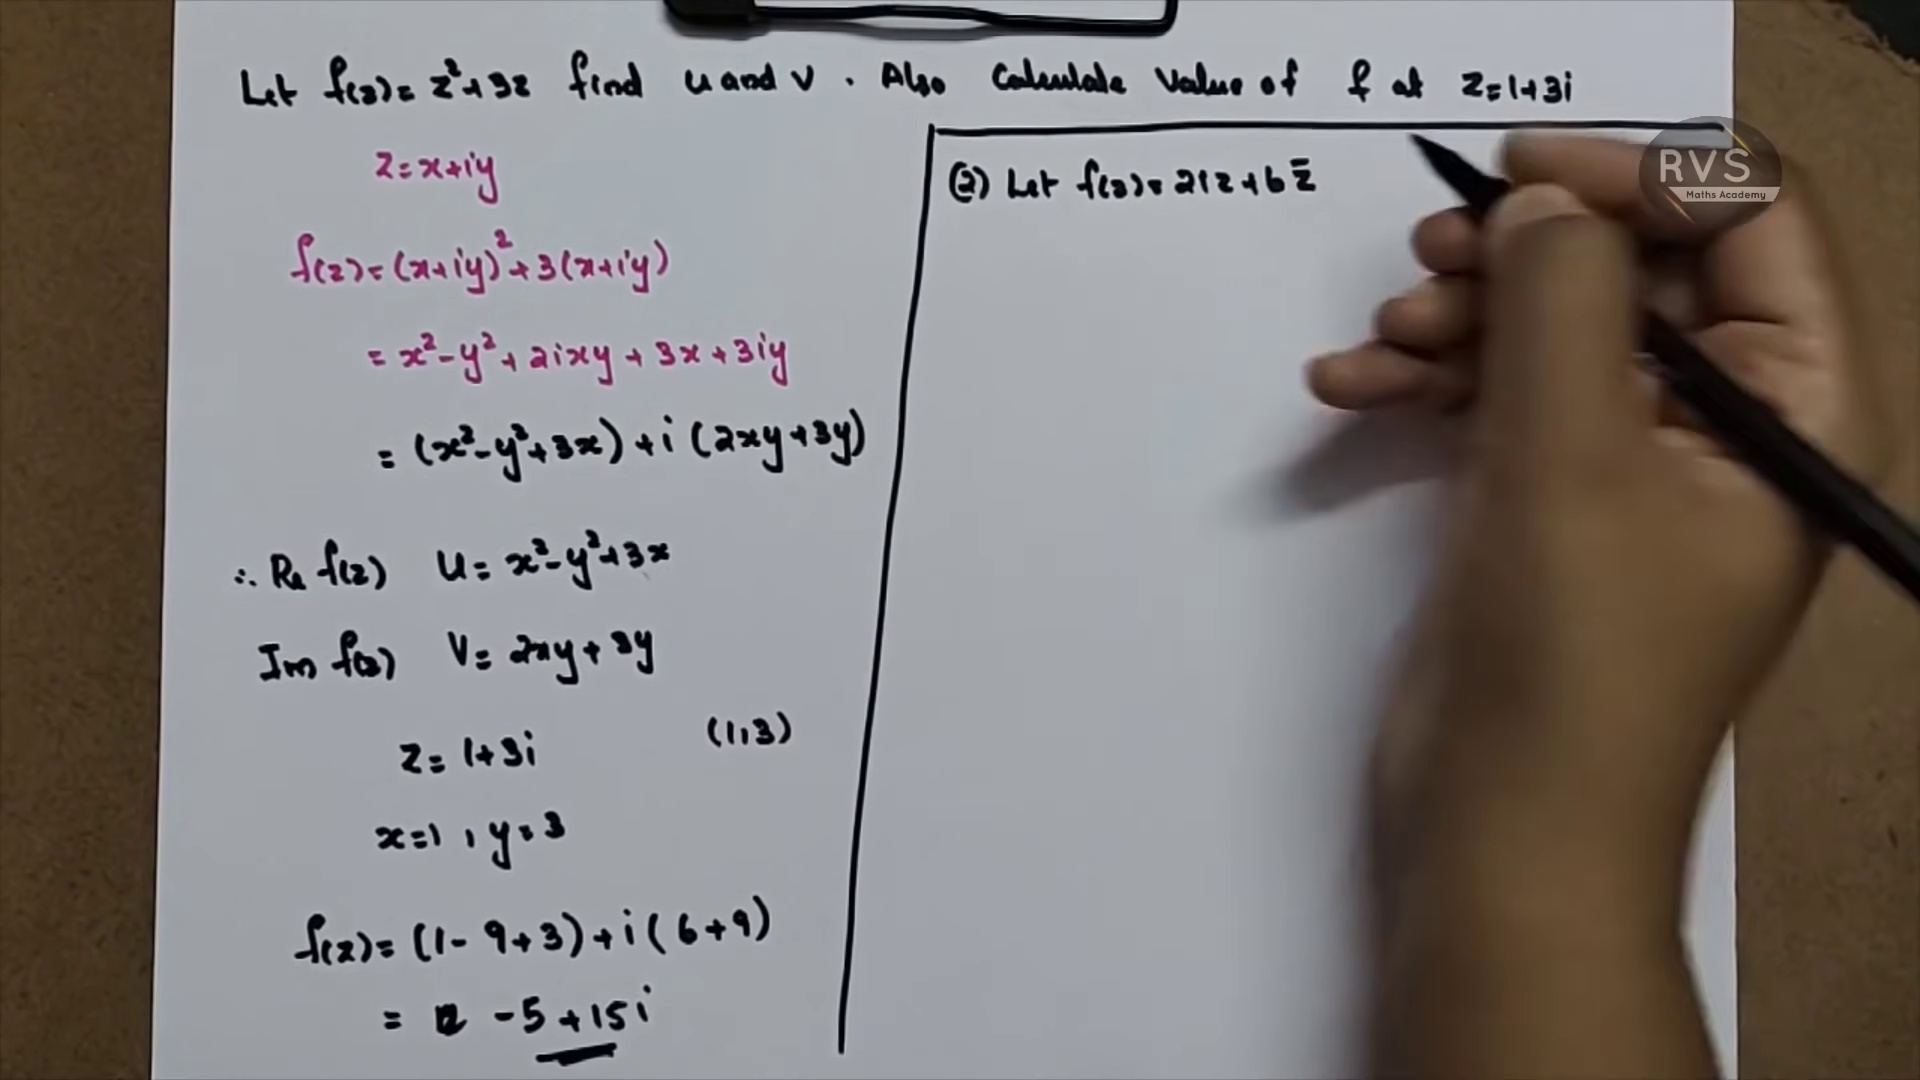 Let f(z) = z² + 3z find u and v . Also Calculate Value of f at z = 1+3i
z = x+iy
f(z) = (x+iy)² + 3(x+iy)
= x² - y² + 2ixy + 3x + 3iy
= (x² - y² + 3x) + i (2xy + 3y)
∴ Re f(z) u = x² - y² + 3x
Im f(z) V = 2xy + 3y
z = 1+3i (1,3)
x=1 , y=3
f(z) = (1- 9+3) + i ( 6+9)
= -5 + 15i
(2) Let f(z) = 2iz + 6z̄
RVS
Maths Academy